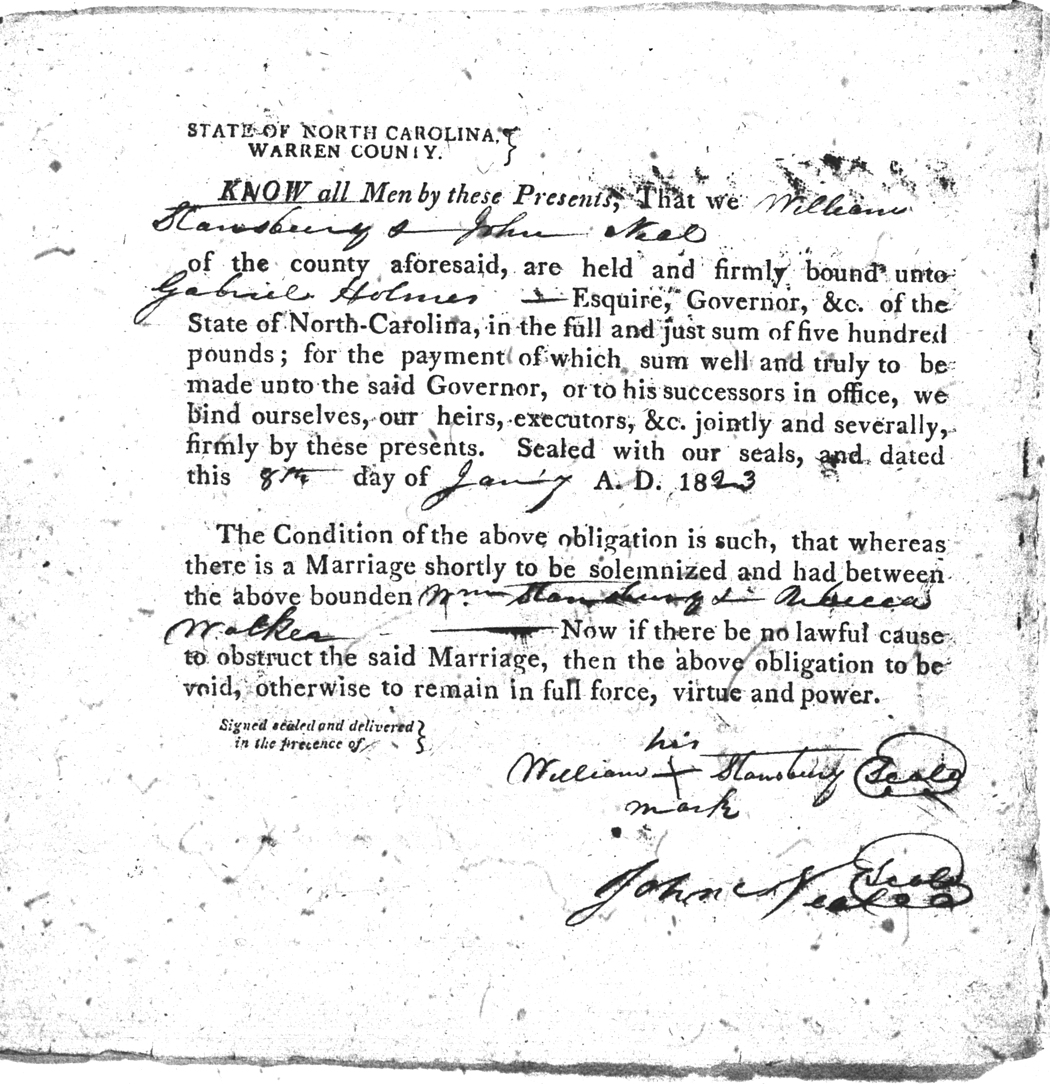 STATE OF NORTH CAROLINA,
WARREN COUNTY.
KNOW all Men by these Presents, That we William
Stansbury & John Neal
of the county aforesaid, are held and firmly bound unto
Gabriel Holmes Esquire, Governor, &c. of the
State of North-Carolina, in the full and just sum of five hundred
pounds; for the payment of which sum well and truly to be
made unto the said Governor, or to his successors in office, we
bind ourselves, our heirs, executors, &c. jointly and severally,
firmly by these presents. Sealed with our seals, and dated
this 8th day of Jan'y A. D. 1823
The Condition of the above obligation is such, that whereas
there is a Marriage shortly to be solemnized and had between
the above bounden Wm Stansbury & Rebecca
Walker Now if there be no lawful cause
to obstruct the said Marriage, then the above obligation to be
void, otherwise to remain in full force, virtue and power.
Signed sealed and delivered
in the precence of
his
William + Stansbury Seal
mark
John Seal